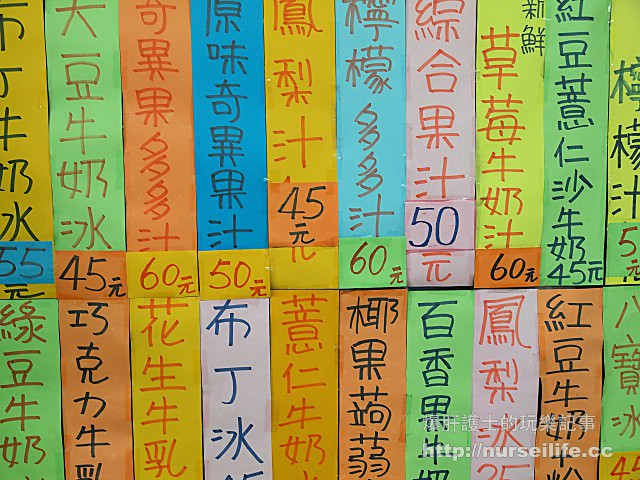 布丁牛奶冰
55
元
大豆牛奶冰
45元
奇異果多多汁
60元
原味奇異果汁
50元
鳳梨汁
45
元
檸檬多多汁
60元
綜合果汁
50
元
新鮮
草莓牛奶汁
60元
紅豆薏仁沙牛奶
45元
檸檬汁
5
元
綠豆牛奶
巧克力牛乳
花生牛乳
布丁冰
薏仁牛奶
椰果蒟蒻
百香果牛奶
鳳梨冰
35
紅豆牛奶粉
八寶冰
45
爆肝護士的玩樂記事
http://nurseilife.cc/